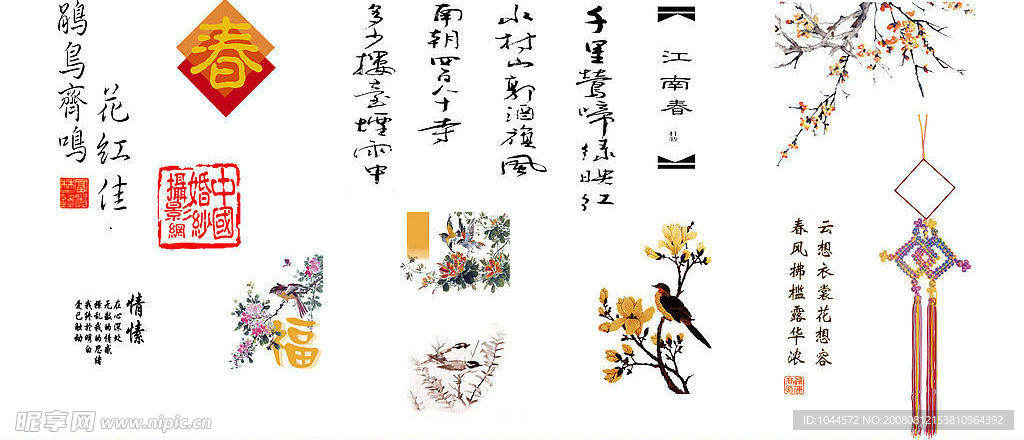 鹃鸟齊鸣
花红佳
春
中國
婚纱
攝影網
江南春
杜牧
千里莺啼绿映红
水村山郭酒旗風
南朝四百八十寺
多少楼臺煙雨中
情愫
在心深处
无数的情感
撩乱我的思绪
我终於明白
爱已触动
福
云想衣裳花想容
春风拂槛露华浓
昵享网 www.nipic.cn
ID:1044572 NO:20080812153810964392